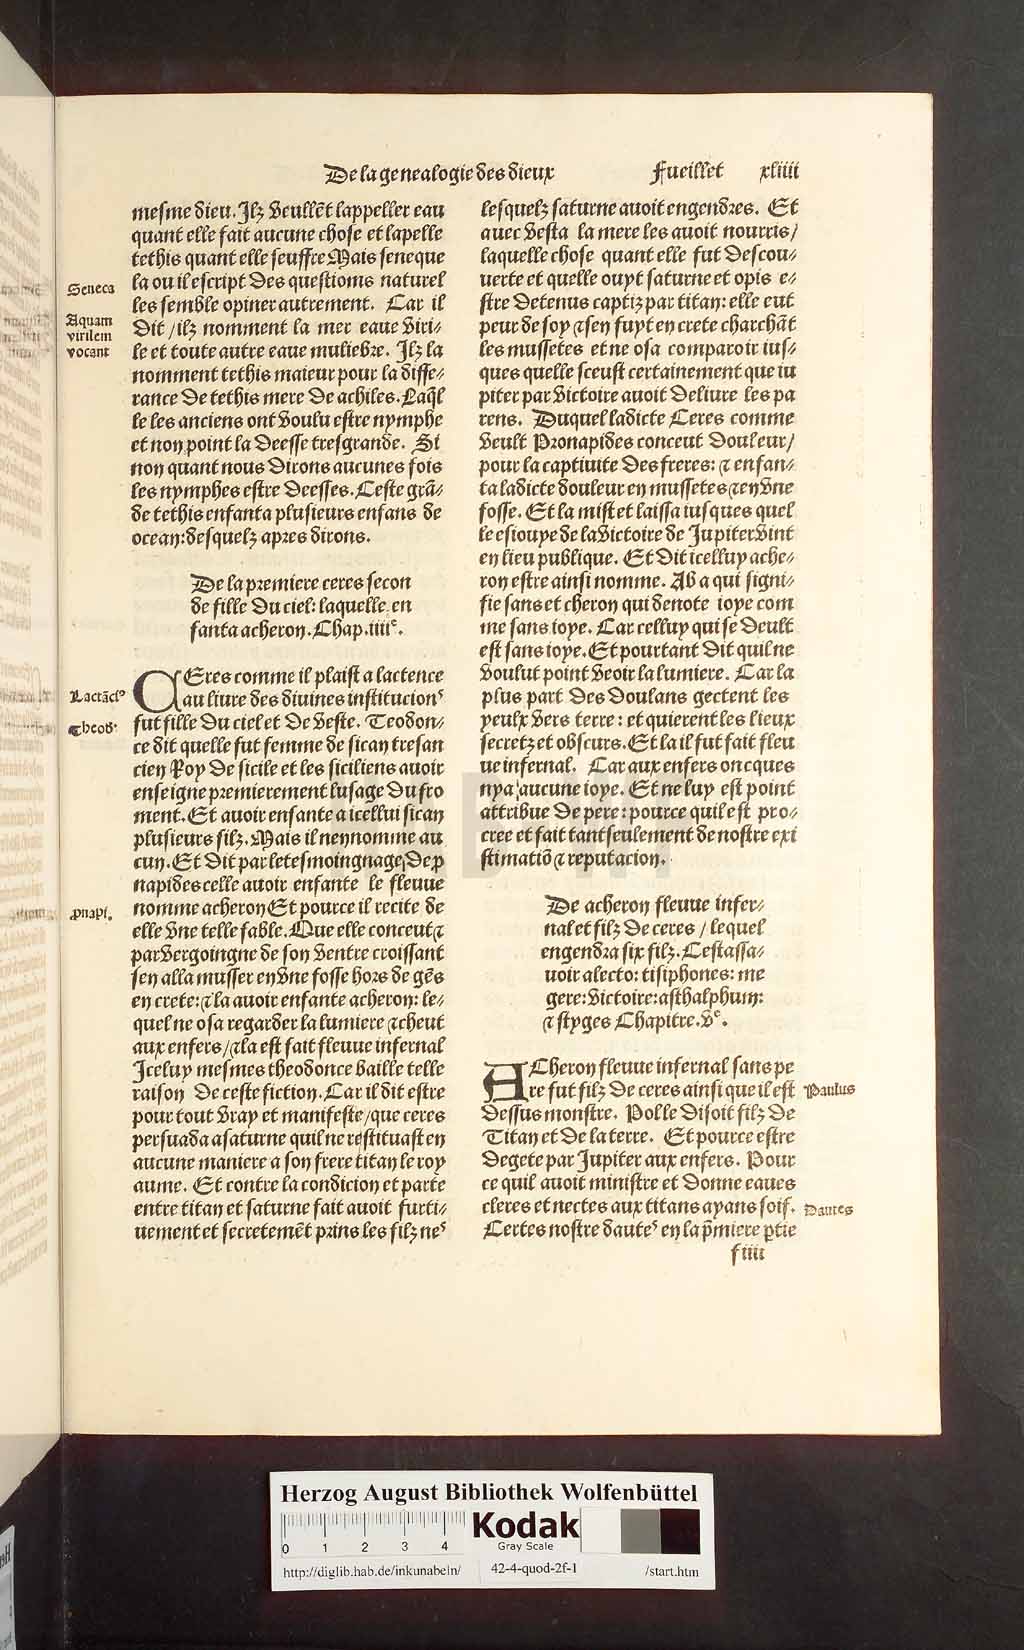 De la genealogie des dieux Fueillet xliiii
mesme dieu. Ilz veullēt lappeller eau
quant elle fait aucune chose et lapelle
tethis quant elle seuffre Mais seneque
la ou il escript des questions naturel
les semble opiner autrement. Car il
dit / ilz nomment la mer eaue viri-
le et toute autre eaue muliebre. Ilz la
nomment tethis maieur pour la diffe-
rance de tethis mere de achiles. Laq̄l
le les anciens ont voulu estre nymphe
et non point la deesse tresgrande. Si
non quant nous dirons aucunes fois
les nymphes estre deesses. Ceste grā-
de tethis enfanta plusieurs enfans de
ocean: desquelz apres dirons.
Seneca
Aquam
virilem
vocant
De la premiere ceres secon
de fille du ciel: laquelle en
fanta acheron. Chap. iiiiᵉ.
CEres comme il plaist a lactence
au liure des diuines institucionˢ
fut fille du ciel et de veste. Teodon-
ce dit quelle fut femme de sican tresan
cien Roy de sicile et les siciliens auoir
enseigne premierement lusage du fro
ment. Et auoir enfante a icellui sican
plusieurs filz. Mais il nen nomme au
cun. Et dit par le tesmoingnage de p
napides celle auoir enfante le fleuue
nomme acheron Et pource il recite de
elle vne telle fable. Que elle conceut ⁊
par vergoingne de son ventre croissant
sen alla musser en vne fosse hors de gēs
en crete: ⁊ la auoir enfante acheron: le-
quel ne osa regarder la lumiere ⁊ cheut
aux enfers / ⁊ la est fait fleuue infernal
Iceluy mesmes theodonce baille telle
raison de ceste fiction. Car il dit estre
pour tout vray et manifeste / que ceres
persuada a saturne quil ne restituast en
aucune maniere a son frere titan le roy
aume. Et contre la condicion et parte
entre titan et saturne fait auoit furti-
uement et secretemēt prins les filz neˢ
Lactāciꝰ
Theod'
pnapi.
lesquelz saturne auoit engendres. Et
auec vesta la mere les auoit nourris /
laquelle chose quant elle fut descou-
uerte et quelle ouyt saturne et opis e-
stre detenus captiz par titan: elle eut
peur de soy ⁊ sen fuyt en crete charchāt
les mussetes et ne osa comparoir ius-
ques quelle sceust certainement que iu
piter par victoire auoit deliure les pa
rens. Duquel ladicte Ceres comme
veult Pronapides conceut douleur /
pour la captiuite des freres: ⁊ enfan-
ta ladicte douleur en mussetes ⁊ en vne
fosse. Et la mist et laissa iusques quel
le esiouye de la victoire de Jupiter vint
en lieu publique. Et dit icelluy ache-
ron estre ainsi nomme. Ab a qui signi-
fie sans et cheron qui denote ioye com
me sans ioye. Car celluy qui se deult
est sans ioye. Et pourtant dit quil ne
voulut point veoir la lumiere. Car la
plus part des doulans gectent les
yeulx vers terre: et quierent les lieux
secretz et obscurs. Et la il fut fait fleu
ue infernal. Car aux enfers oncques
nya aucune ioye. Et ne luy est point
attribue de pere: pource quil est pro-
cree et fait tant seulement de nostre exi
stimatiō ⁊ reputacion.
De acheron fleuue infer-
nal et filz de ceres / lequel
engendra six filz. Cestassa-
uoir alecto: tisiphones: me
gere: victoire: asthalphum:
⁊ styges Chapitre. vᵉ.
ACheron fleuue infernal sans pe
re fut filz de ceres ainsi que il est
dessus monstre. Polle disoit filz de
Titan et de la terre. Et pource estre
degete par Jupiter aux enfers. Pour
ce quil auoit ministre et donne eaues
cleres et nectes aux titans ayans soif.
Certes nostre dauteˢ en la p̄miere ptie
Paulus
Dautes
f iiii
Herzog August Bibliothek Wolfenbüttel
0 1 2 3 4
Kodak
Gray Scale
http://diglib.hab.de/inkunabeln/ 42-4-quod-2f-1 /start.htm